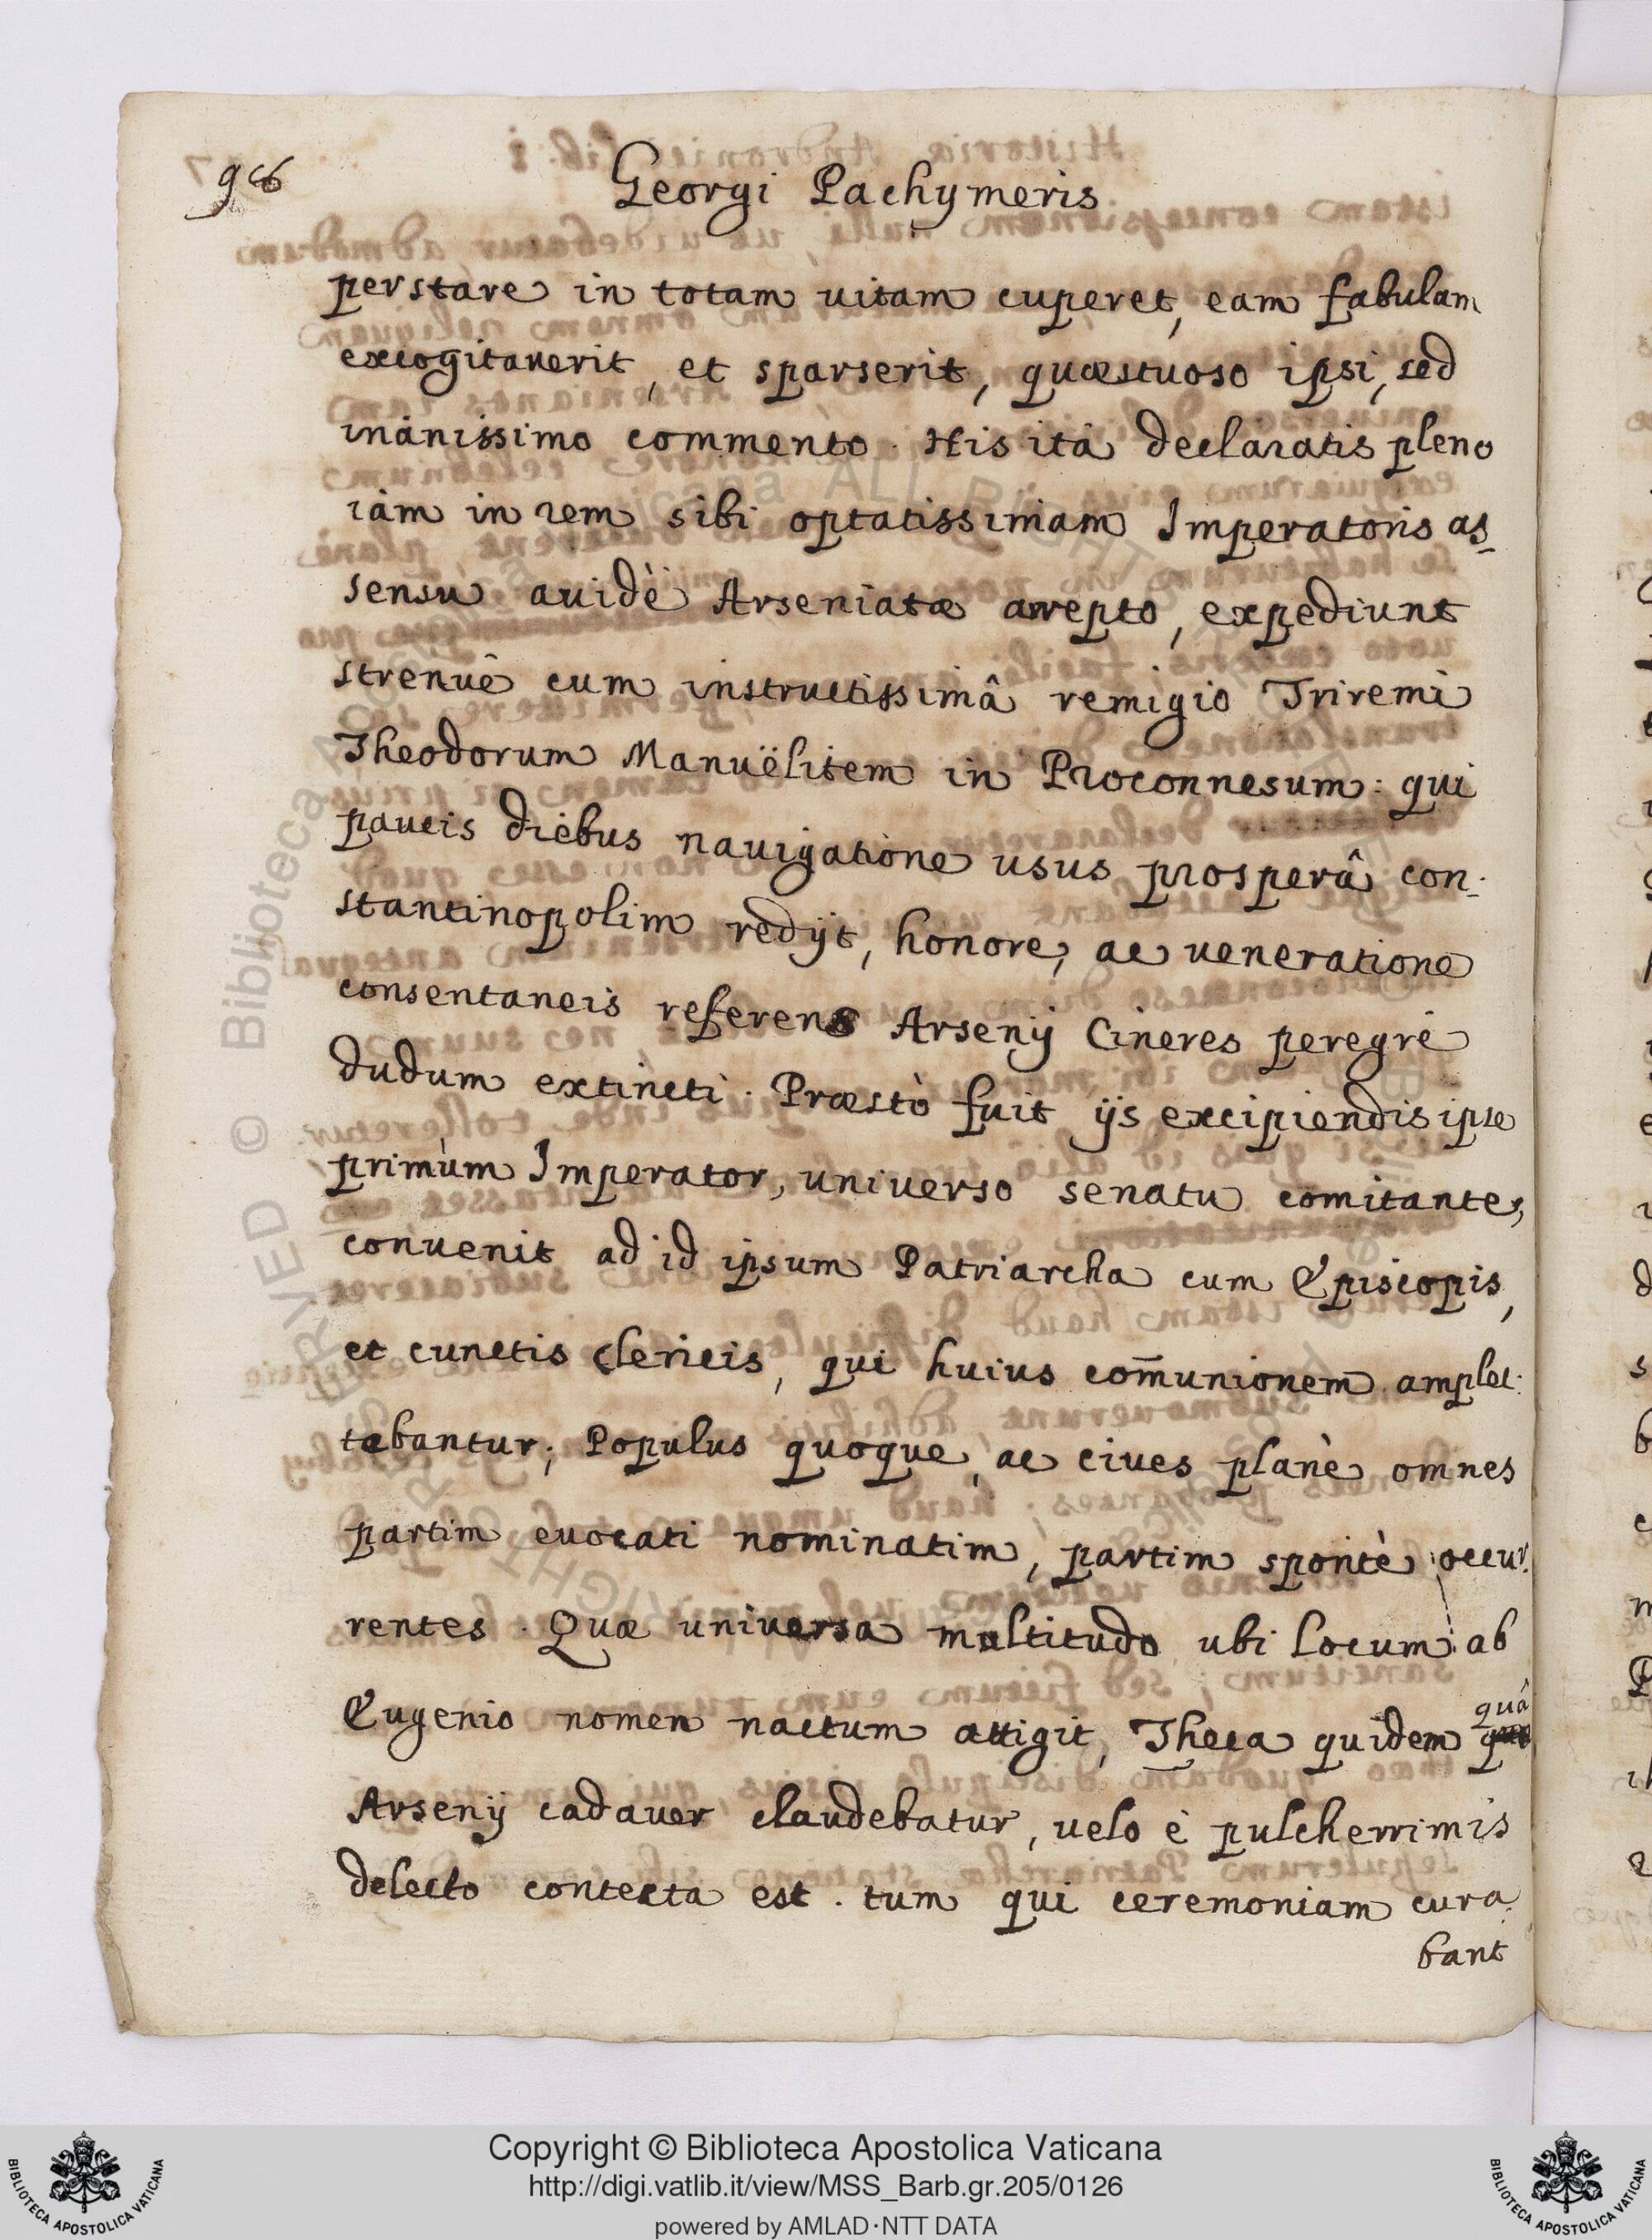 96
Georgi Pachymeris
perstare in totam uitam cuperet, eam fabulam
excogitauerit, et sparserit, quæstuoso ipsi, sed
inanissimo commento. His ita declaratis pleno
iàm in rem sibi optatissimam Imperatoris as-
sensu auidè Arseniatæ arrepto, expediunt
strenuè cum instructissimâ remigio Triremi
Theodorum Manuëlitem in Proconnesum: qui
paucis diebus nauigatione usus prosperâ con-
stantinopolim redijt, honore, ac ueneratione
consentaneis referens Arsenij Cineres peregrè
dudum extincti. Præstò fuit ijs excipiendis ipse
primùm Imperator, uniuerso senatu comitante,
conuenit ad id ipsum Patriarcha cum Episcopis,
et cunctis clericis, qui huius com̄unionem amplec-
tebantur; Populus quoque, ac ciues planè omnes
partim euocati nominatim, partim spontè occur-
rentes. Quæ uniuersa multitudo ubi locum ab
Eugenio nomen nactum attigit, Theca quidem quâ
Arsenij cadauer claudebatur, uelo è pulcherrimis
delecto contecta est. tum qui ceremoniam cura-
bant
Copyright © Biblioteca Apostolica Vaticana
http://digi.vatlib.it/view/MSS_Barb.gr.205/0126
powered by AMLAD·NTT DATA
BIBLIOTECA APOSTOLICA VATICANA
BIBLIOTECA APOSTOLICA VATICANA